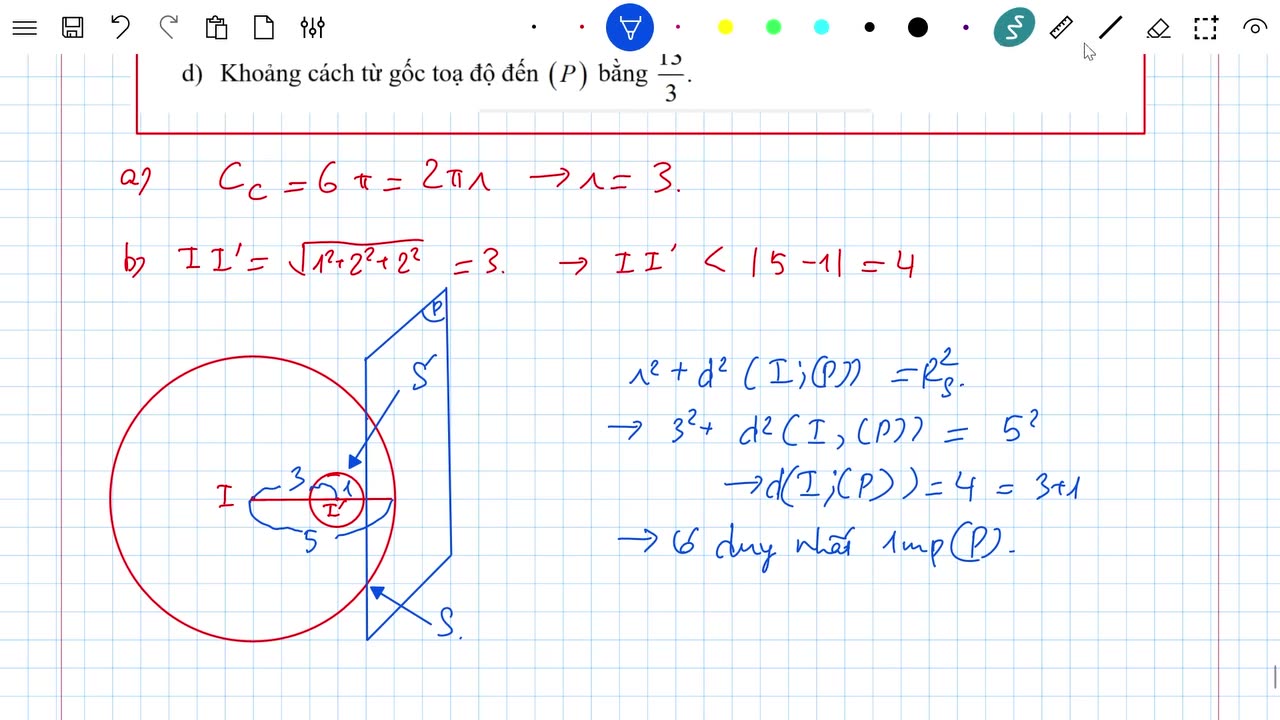 d) Khoảng cách từ gốc toạ độ đến (P) bằng 13/3.
a) C_C = 6π = 2πr → r = 3.
b) II' = √(1²+2²+2²) = 3. → II' < |5 - 1| = 4
P
S'
r² + d²(I;(P)) = R_S².
→ 3² + d²(I,(P)) = 5²
3 1
I I'
→ d(I;(P)) = 4 = 3+1
5
→ có duy nhất 1mp(P).
S.